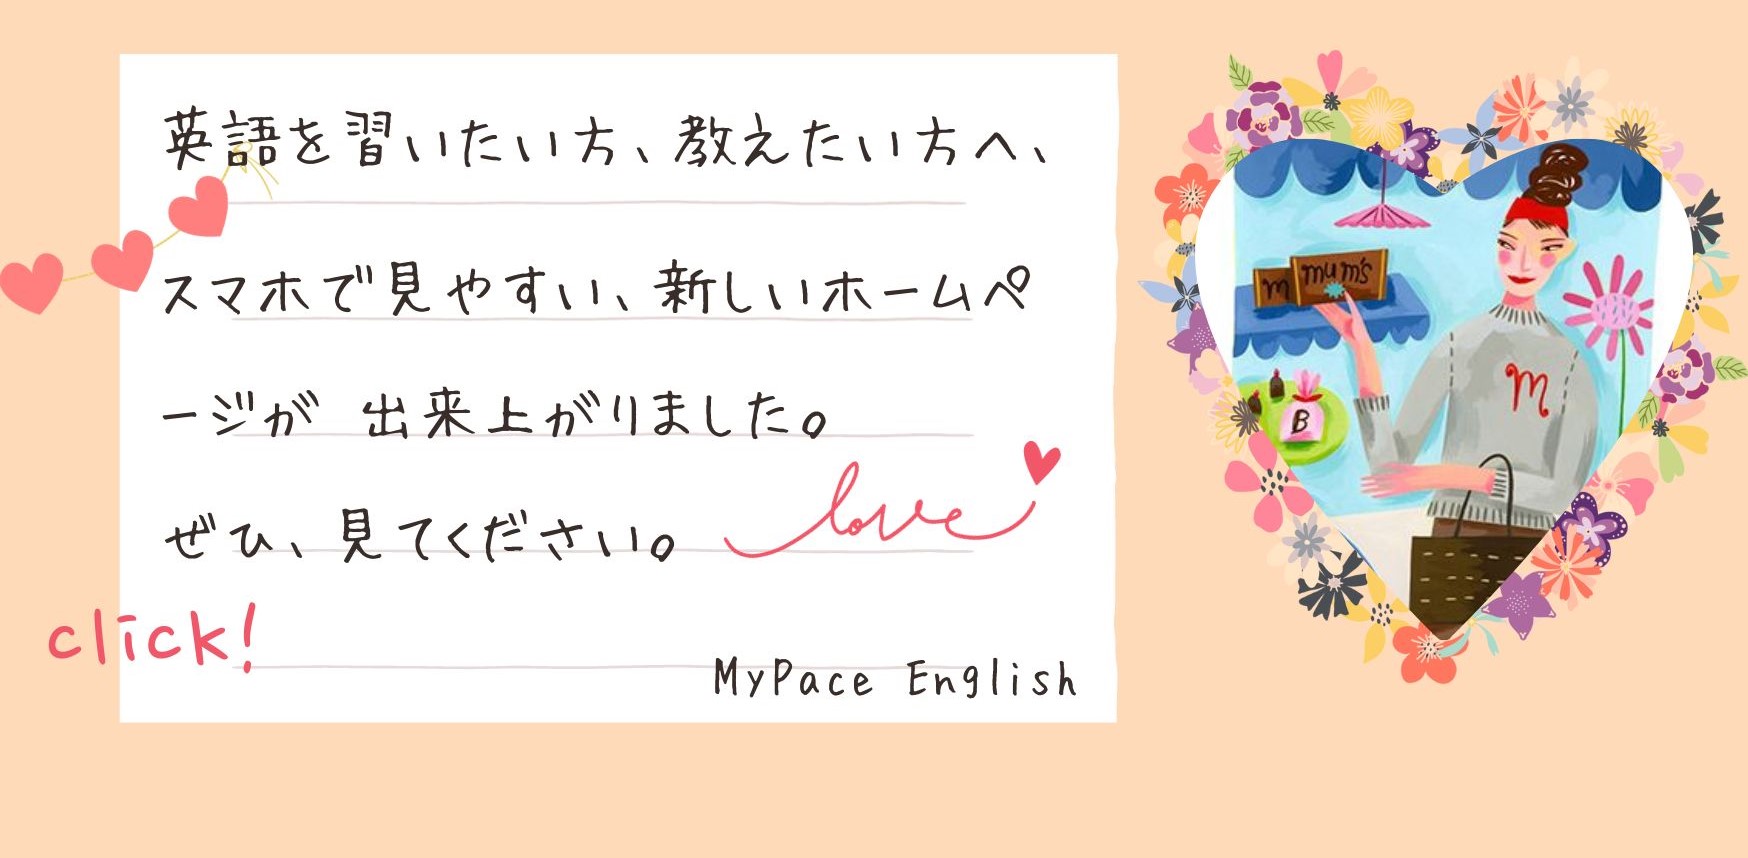 英語を習いたい方、教えたい方へ、
スマホで見やすい、新しいホームペ
ージが 出来上がりました。
ぜひ、見てください。
love
click!
MyPace English
m mum's
m
B